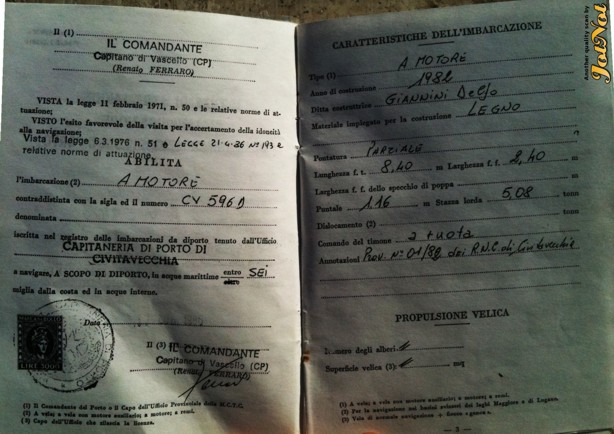 Il (1)
IL COMANDANTE
Capitano di Vascello (CP)
(Renato FERRARO)
VISTA la legge 11 febbraio 1971, n. 50 e le relative norme di at-
tuazione;
VISTO l'esito favorevole della visita per l'accertamento della idoneità
alla navigazione;
Vista la legge 6.3.1976 n. 51 e LEGGE 21-4-86 N° 193 e
relative norme di attuazione
ABILITA
l'imbarcazione (2) A MOTORE
contraddistinta con la sigla ed il numero CV 596 D
denominata
iscritta nel registro delle imbarcazioni da diporto tenuto dall'Ufficio
CAPITANERIA DI PORTO DI
CIVITAVECCHIA
a navigare, A SCOPO DI DIPORTO, in acque marittime entro SEI
miglia dalla costa ed in acque interne.
Data
Il (3) IL COMANDANTE
Capitano di Vascello (CP)
(Renato FERRARO)
(1) Il Comandante del Porto o il Capo dell'Ufficio Provinciale della M.C.T.C.
(2) A vela; a vela con motore ausiliario; a motore; a remi.
(3) Capo dell'Ufficio che rilascia la licenza.
CARATTERISTICHE DELL'IMBARCAZIONE
Tipo (1) A MOTORE
Anno di costruzione 1982
Ditta costruttrice GIANNINI Delfo
Materiale impiegato per la costruzione LEGNO
Pontatura PARZIALE
Lunghezza f. t. 8,40 m Larghezza f. f. 2,40 m
Larghezza f. f. dello specchio di poppa m
Puntale 1.16 m Stazza lorda 5,08 tonn
Dislocamento (2) tonn
Comando del timone a ruota
Annotazioni Prov. N° 01/89 dei R.N.C. di Civitavecchia
PROPULSIONE VELICA
Numero degli alberi
Superficie velica (3) mq
(1) A vela; a vela con motore ausiliario; a motore; a remi.
(2) Per la navigazione nei bacini svizzeri dei laghi Maggiore e di Lugano.
(3) Vele di normale navigazione
— 3 —
Another quality scan by
JotNot